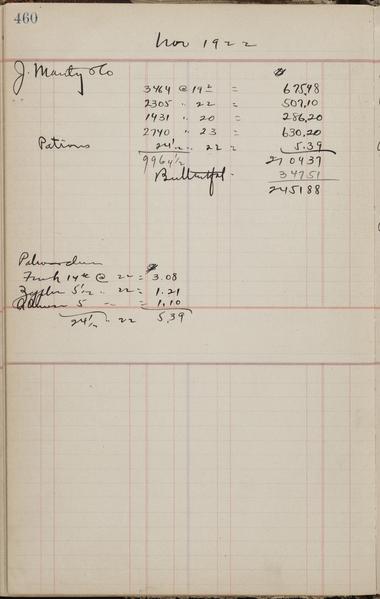 460
Nov 1922
J. Manty & Co
3464 @ 19½ = 675.48
2305 " 22 = 507.10
1431 " 20 = 286.20
2740 " 23 = 630.20
Patrons 24½ " 22 = 5.39
9964½ 2704 37
347 51
2451 88
14 @ 22 = 3.08
5½ " 22 = 1.21
5 " " = 1.10
24½ " 22 5.39